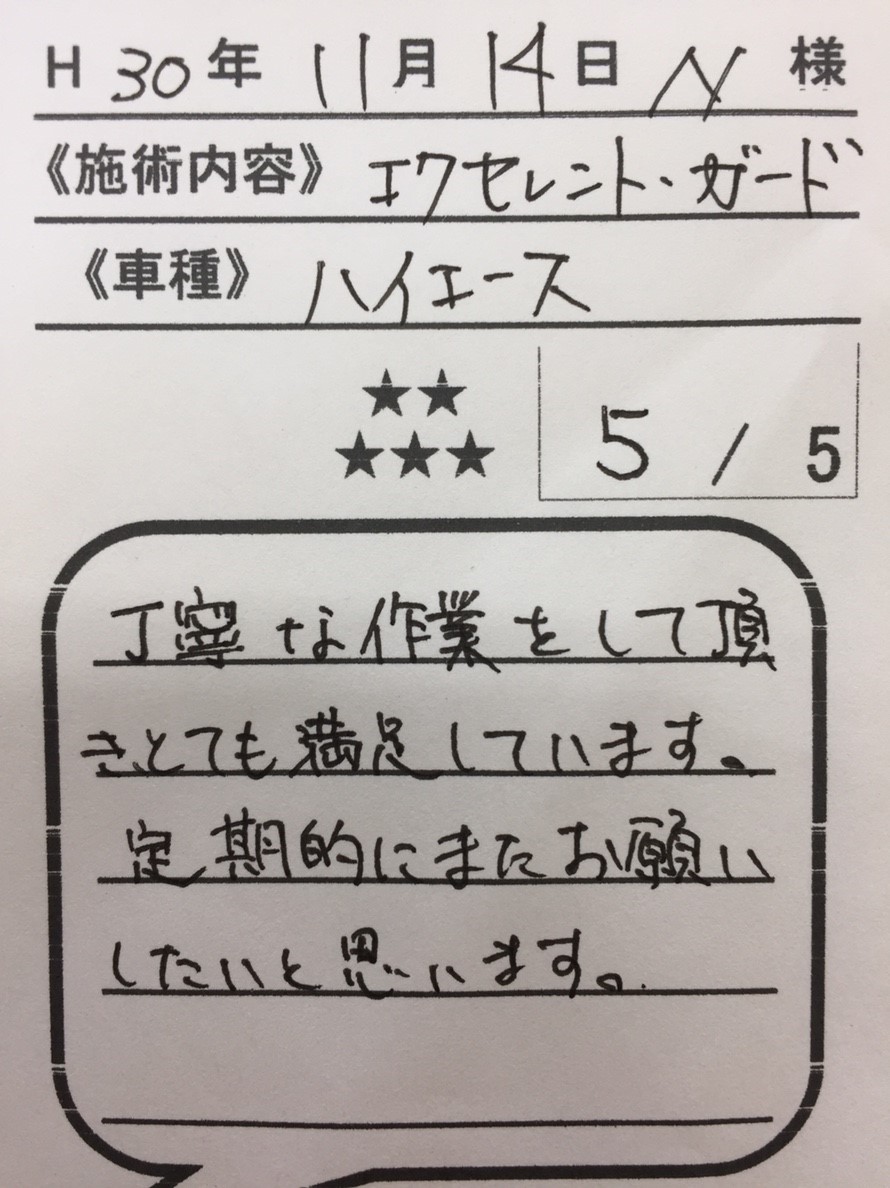 H 30年 11月 14日 N 様
《施術内容》 エクセレント・ガード
《車種》 ハイエース
★★
★★★
5 / 5
丁寧な作業をして頂
きとても満足しています。
定期的にまたお願い
したいと思います。